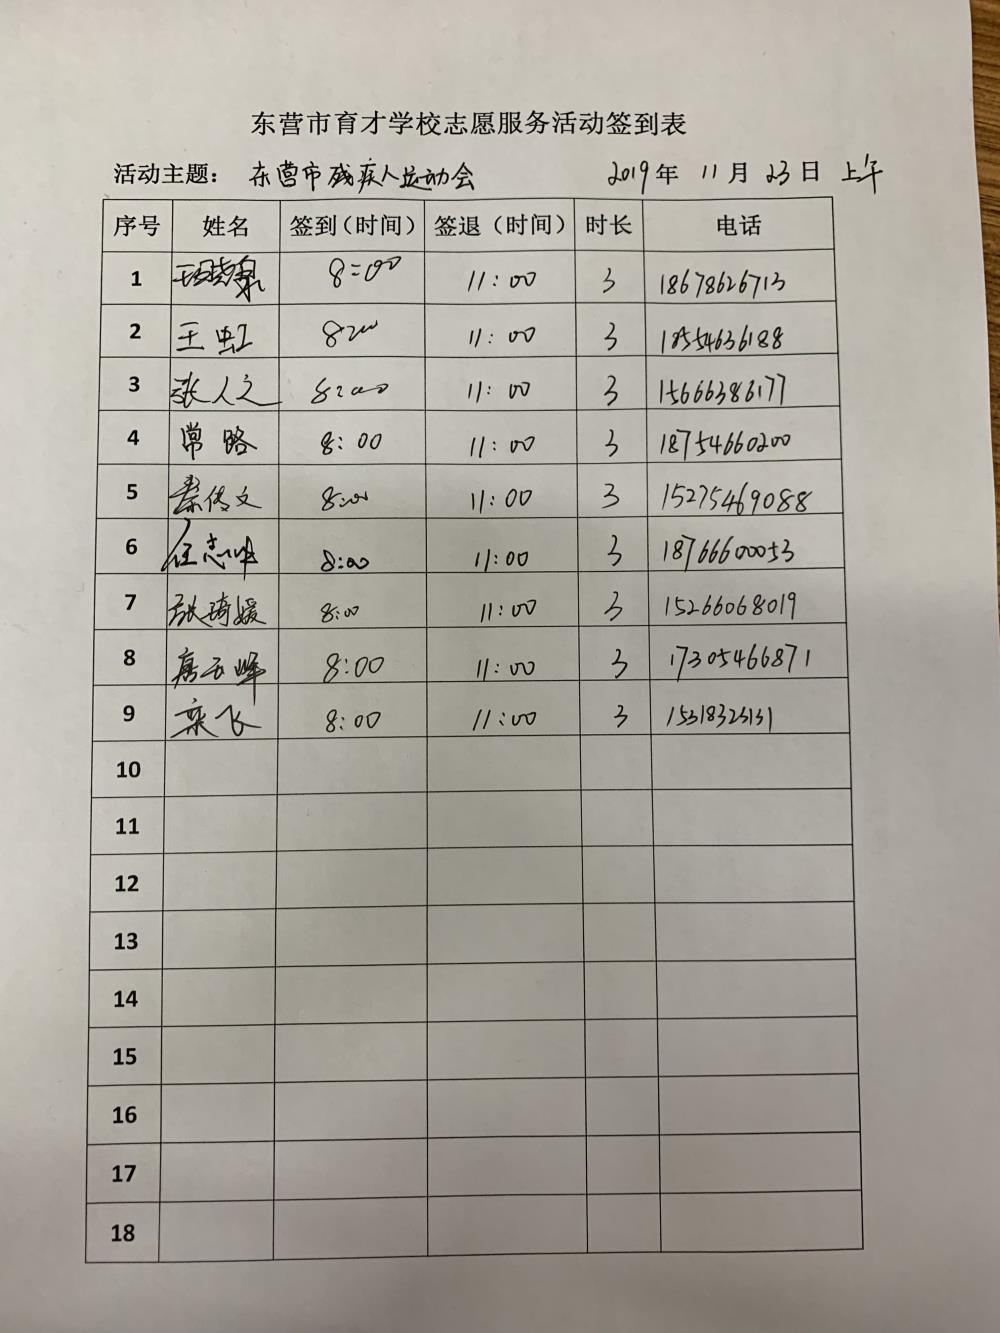 东营市育才学校志愿服务活动签到表
活动主题： 东营市残疾人运动会 2019年 11月 23日 上午
序号 姓名 签到（时间） 签退（时间） 时长 电话
1 8:00 11:00 3 18678626713
2 王虹 8:00 11:00 3 18554636188
3 张人之 8:00 11:00 3 15666386177
4 常路 8:00 11:00 3 18754660200
5 秦传文 8:00 11:00 3 15275469088
6 任志坤 8:00 11:00 3 18766600053
7 张琦媛 8:00 11:00 3 15266068019
8 唐玉峰 8:00 11:00 3 17305466871
9 栾飞 8:00 11:00 3 15318323131
10
11
12
13
14
15
16
17
18